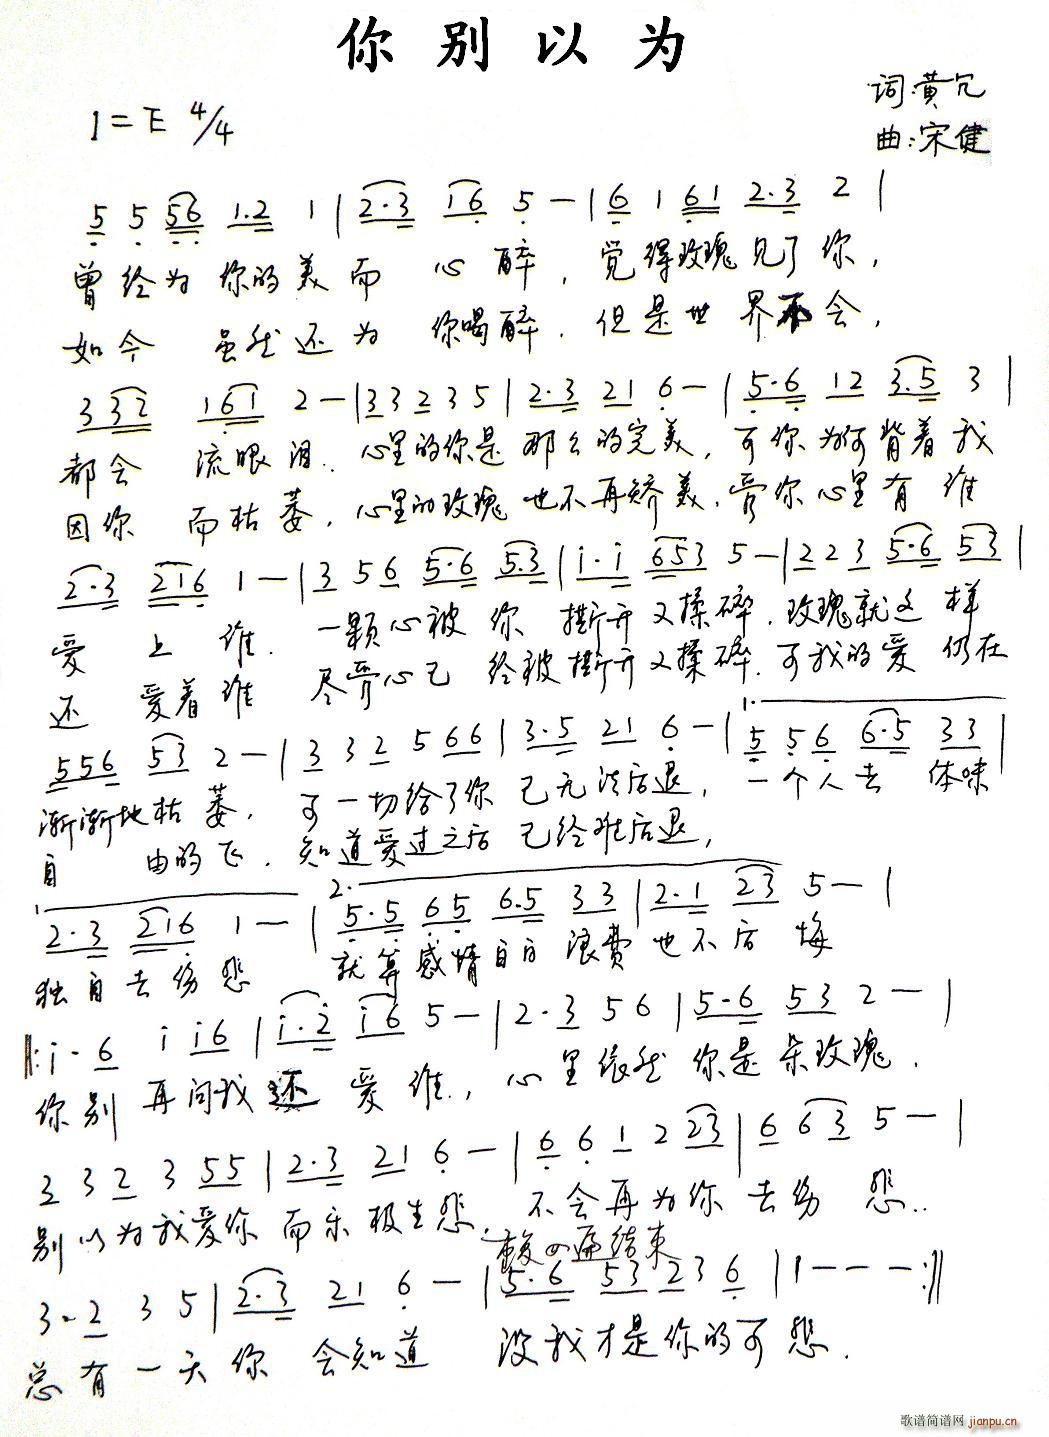 你别以为
词:黄冗
1=E 4/4
曲:宋健
5 5 56 1.2 1 | 2·3 16 5 — | 6 1 61 2·3 2 |
曾经为你的美而 心醉,觉得玫瑰见了你,
如今 虽然还为 你喝醉.但是世界不会,
3 32 161 2 — | 33235 | 2·3 21 6 — | 5·6 12 3.5 3 |
都会 流眼泪..心里的你是那么的完美,可你为何背着我
因你 而枯萎,心里的玫瑰也不再娇美.管你心里有谁
2·3 216 1 — | 3 56 5·6 5.3 | i·i 653 5 — | 2 2 3 5·6 53 |
爱上谁.一颗心被你 撕开又揉碎.玫瑰就这样
还 爱着谁 尽管心已给被撕开又揉碎.可我的爱仍在
556 53 2 — | 3 3 2 5 66 | 3·5 21 6 — | 1. 5 5 6 6·5 33 |
渐渐地枯萎,可一切给了你已无法后退,一个人去 体味
自 由的飞.知道爱过之后已经难后退,
2·3 216 1 — | 2. 5·5 65 6.5 33 | 2·1 23 5 — |
独自去伤悲 就算感情白白浪费也不后悔
‖: i· 6 i i6 | i·2 i6 5 — | 2·3 56 | 5·6 53 2 — |
你别 再问我还爱谁.,心里依然你是朵玫瑰.
3 3 2 3 55 | 2·3 21 6 — | 6 6 1 2 23 | 6 6 3 5 — |
别以为我爱你而乐极生悲.不会再为你去伤 悲..
遍结束
3·2 3 5 | 2·3 21 6 — | 5·6 53 23 6 | 1 — — — :‖
总有一天你 会知道 没我才是你的可悲.
歌谱简谱网 jianpu.cn